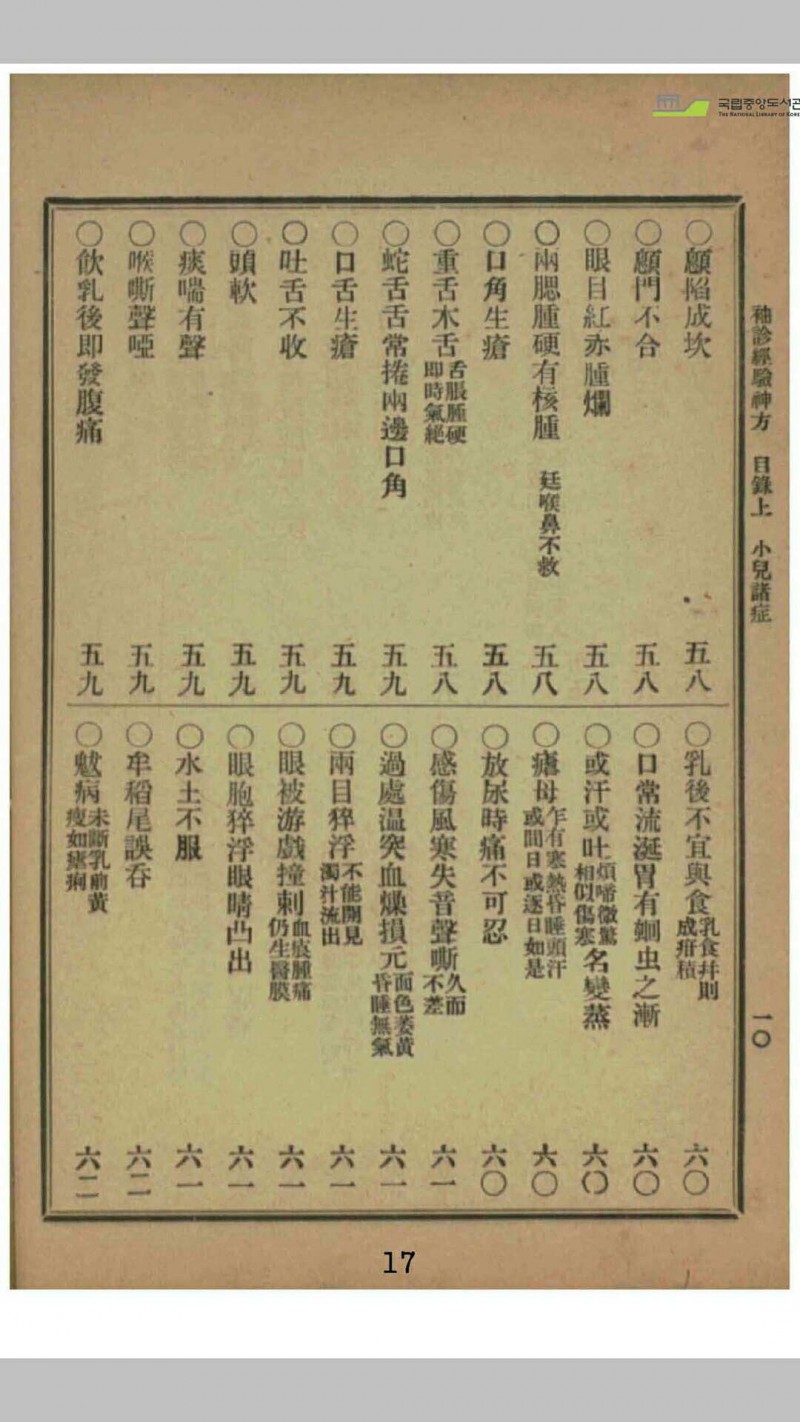 국립중앙도서관
THE NATIONAL LIBRARY OF KOREA
袖診經驗神方 目錄上 小兒諸症 一〇
〇顖陷成坎 五八
〇顖門不合 五八
〇眼目紅赤腫爛 五八
〇兩腮腫硬有核腫 廷喉鼻不救 五八
〇口角生瘡 五八
〇重舌木舌 舌脹腫硬 即時氣絕 五八
〇蛇舌舌常捲兩邊口角 五九
〇口舌生瘡 五九
〇吐舌不收 五九
〇頭軟 五九
〇痰喘有聲 五九
〇喉嘶聲啞 五九
〇飮乳後即發腹痛 五九
〇乳後不宜與食 乳食幷則 成疳積 六〇
〇口常流涎胃有蛔虫之漸 六〇
〇或汗或吐 煩啼微驚 相似傷寒 名變蒸 六〇
〇瘧母 乍有寒熱昏睡頭汗 或間日或逐日如是 六〇
〇放尿時痛不可忍 六〇
〇感傷風寒失音聲嘶 久而 不差 六一
〇過處温突血燥損元 面色萎黃 昏睡無氣 六一
〇兩目猝浮 不能開見 濁汁流出 六一
〇眼被游戲撞刺 血痕腫痛 仍生醫膜 六一
〇眼胞猝浮眼睛凸出 六一
〇水土不服 六一
〇牟稻尾誤吞 六二
〇魃病 未斷乳前黃 瘦如瘧痢 六二
17